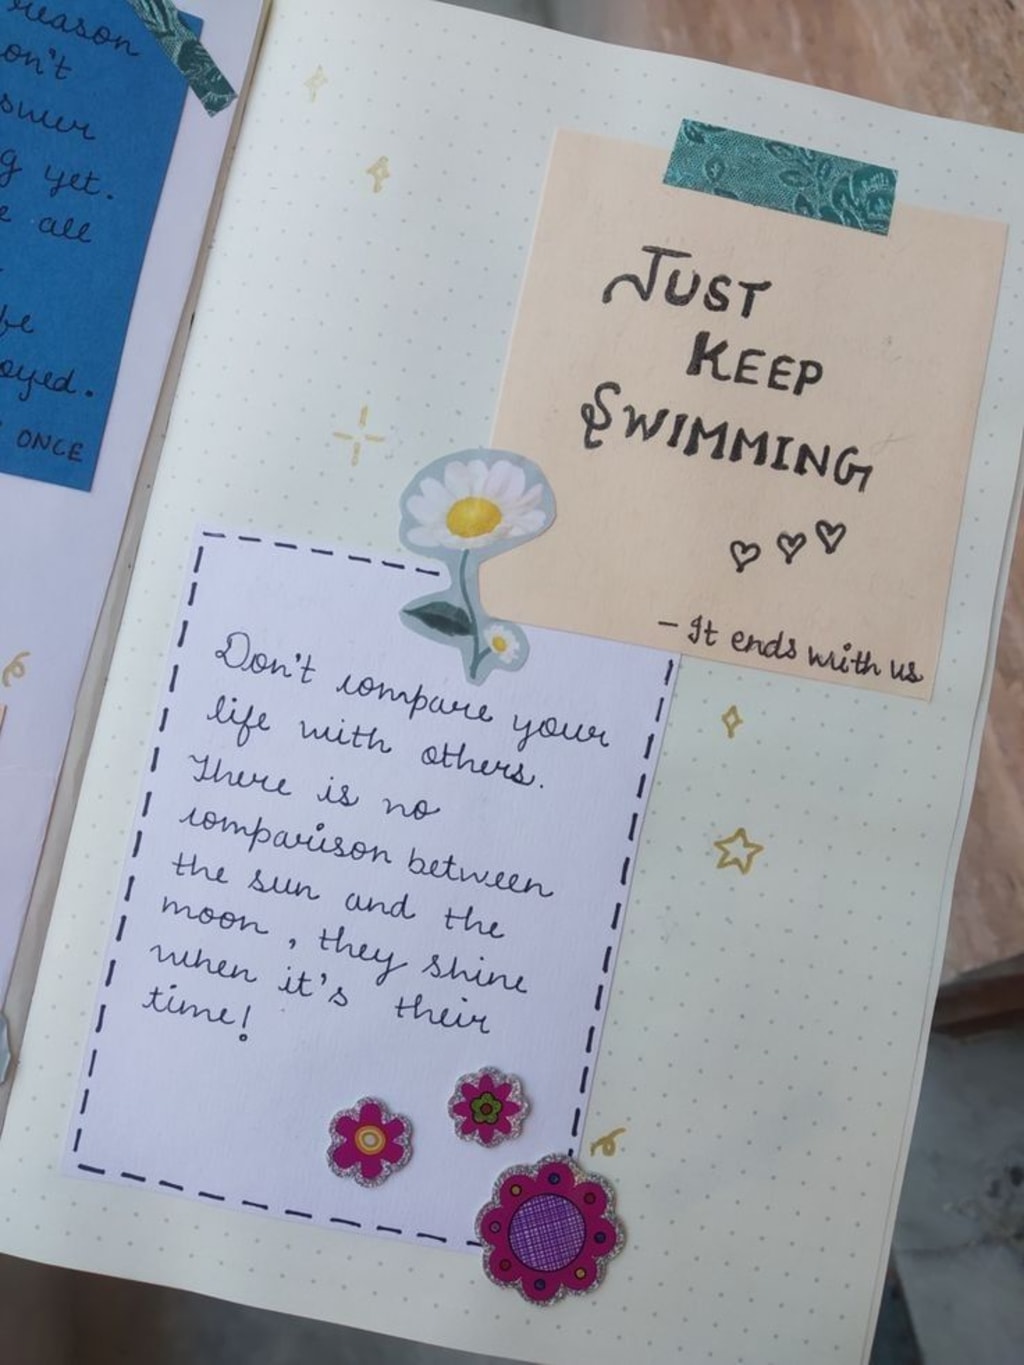 reason
on't
g yet.
all
be
oyed.
ONCE
JUST
KEEP
SWIMMING
- It ends with us
Don't compare your
life with others.
There is no
comparison between
the sun and the
moon, they shine
when it's their
time!